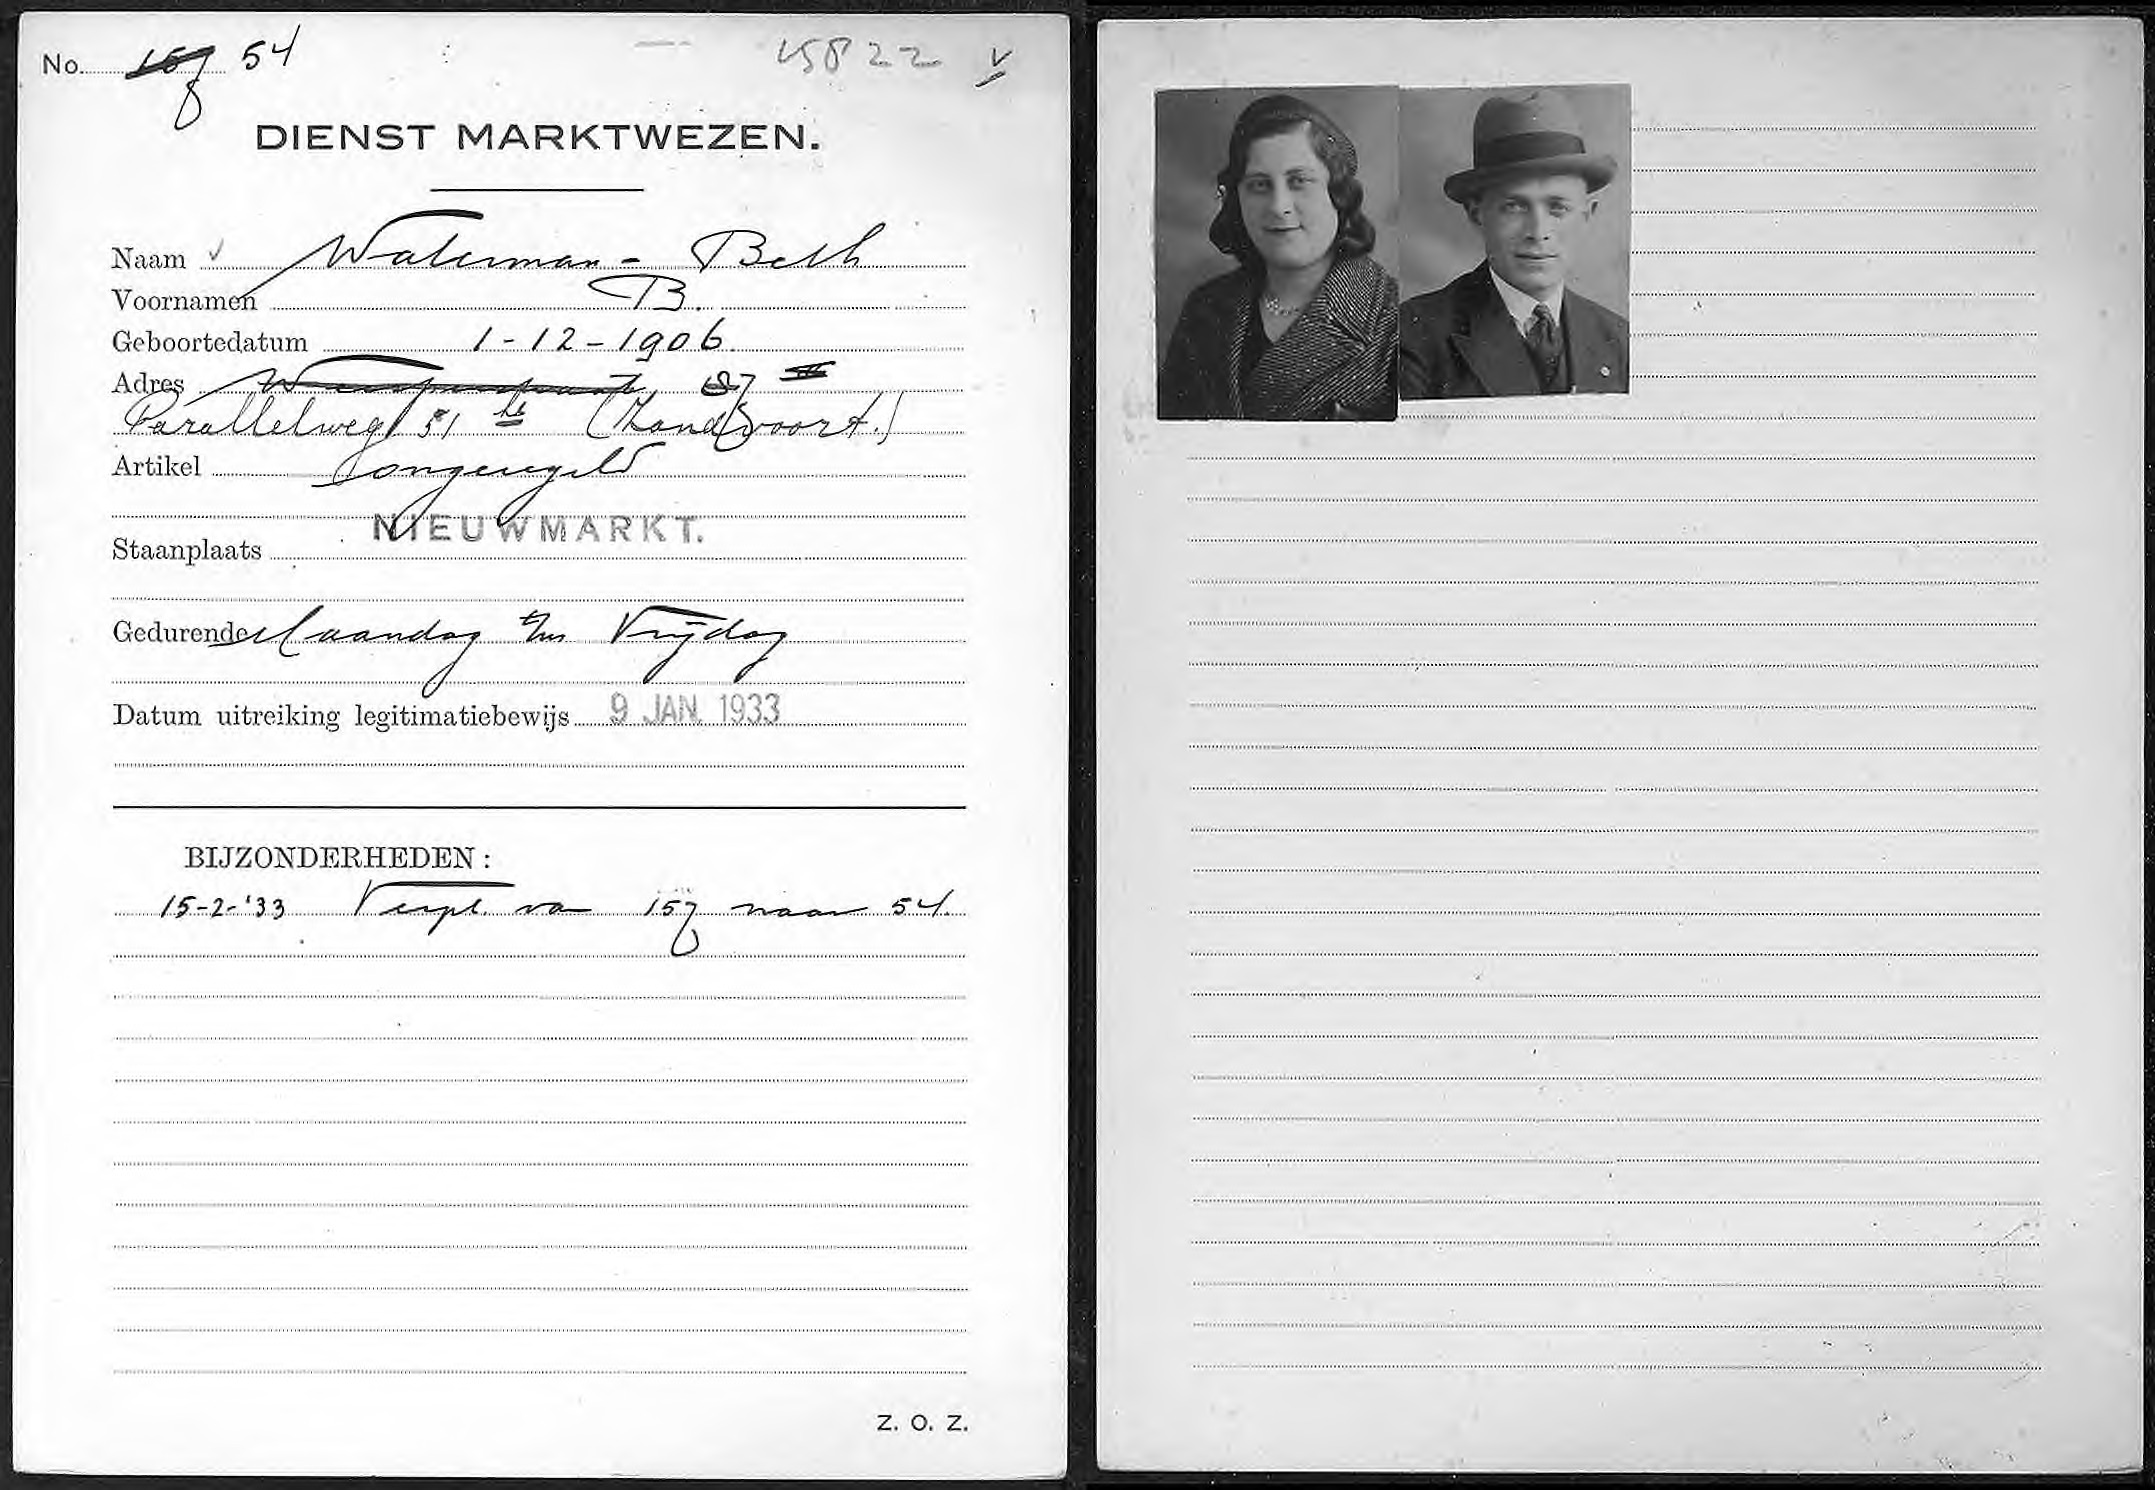 No. 157 54 15822 V
DIENST MARKTWEZEN.
Naam V Waterman - Beth
Voornamen B.
Geboortedatum 1-12-1906.
Adres Weesperstraat 87 III
Parallelweg 51 hs (Zandvoort.)
Artikel Ongeregeld
NIEUWMARKT.
Staanplaats
Gedurende Maandag t/m Vrijdag
Datum uitreiking legitimatiebewijs 9 JAN. 1933
BIJZONDERHEDEN:
15-2-'33 Verpl. van 157 naar 54.
Z. O. Z.